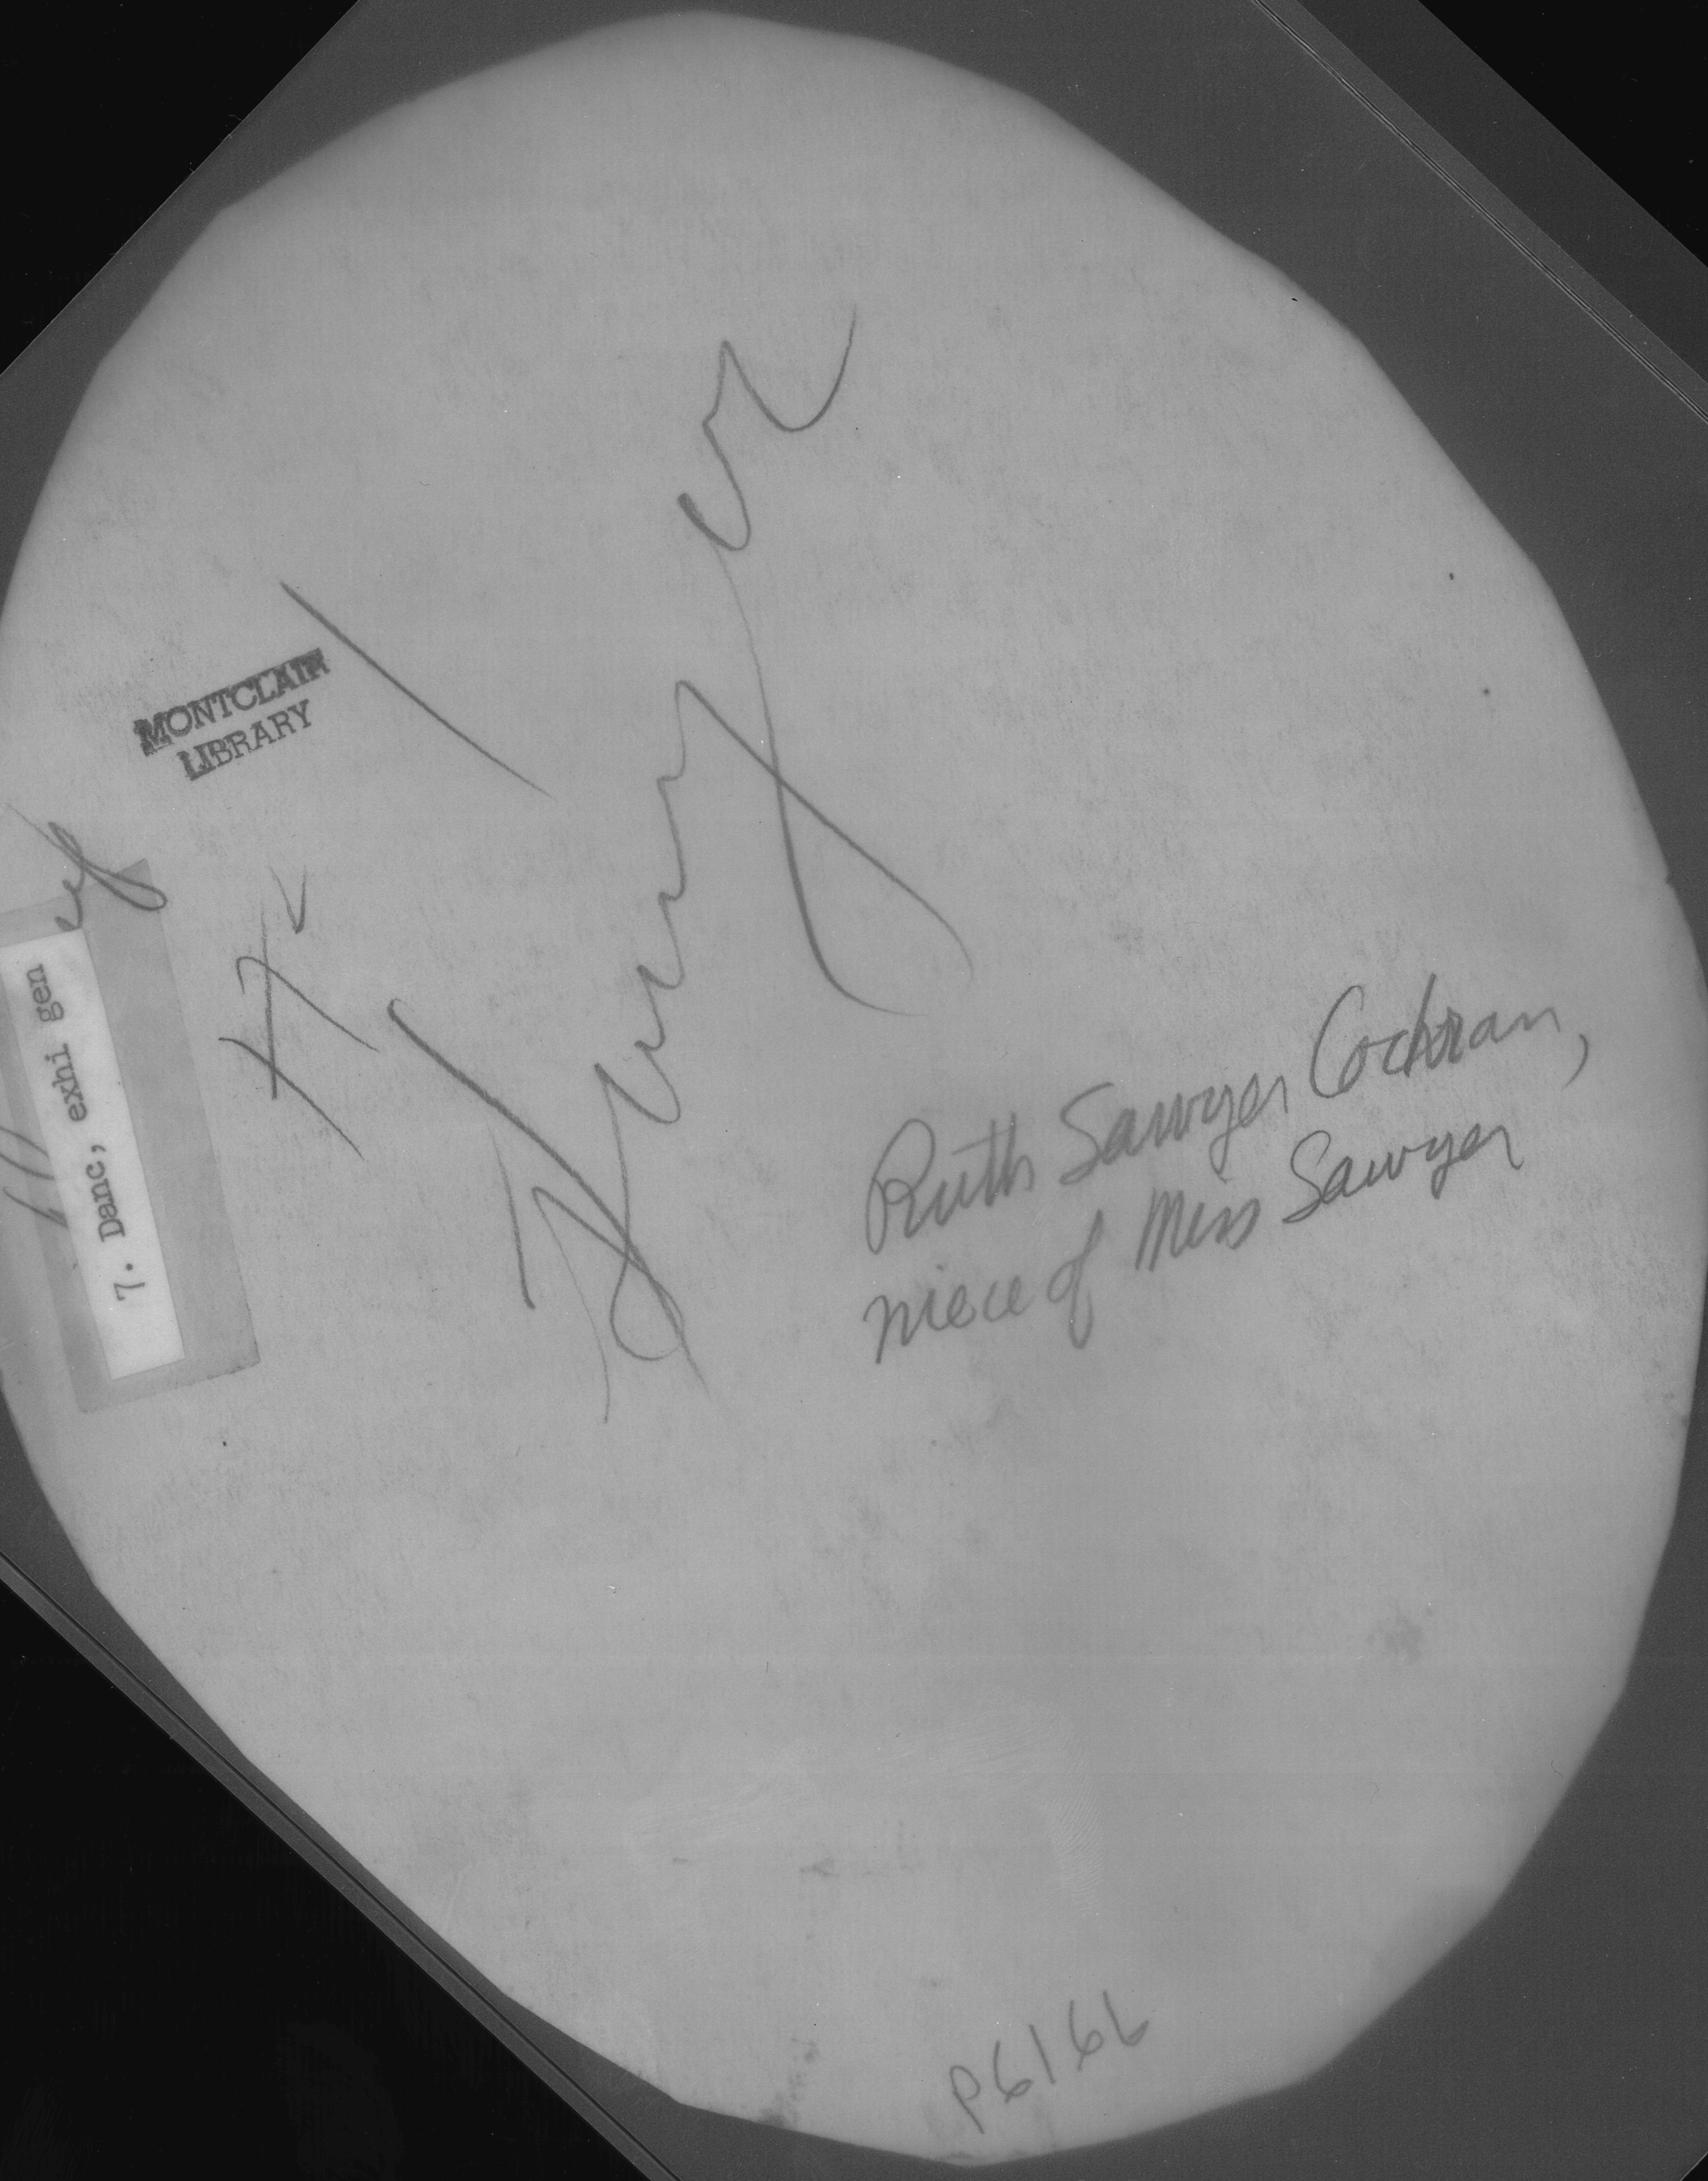 MONTCLAIR
LIBRARY
7. Danc, exhi gen
Sawyer
Ruth Sawyer Cochran,
niece of Miss Sawyer
P6166